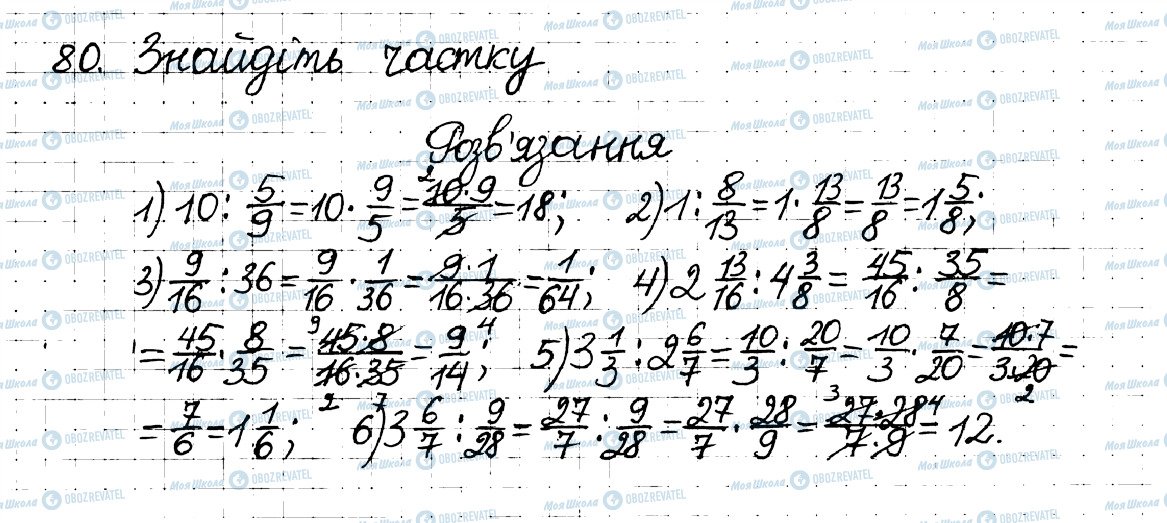 80. Знайдіть частку
Розв'язання
1) 10 : 5/9 = 10 · 9/5 = 10·9/5 = 18; 2) 1 : 8/13 = 1 · 13/8 = 13/8 = 1 5/8;
3) 9/16 : 36 = 9/16 · 1/36 = 9·1/16·36 = 1/64; 4) 2 13/16 : 4 3/8 = 45/16 : 35/8 =
= 45/16 · 8/35 = 45·8/16·35 = 9/14; 5) 3 1/3 : 2 6/7 = 10/3 : 20/7 = 10/3 · 7/20 = 10·7/3·20 =
= 7/6 = 1 1/6; 6) 3 6/7 : 9/28 = 27/7 : 9/28 = 27/7 · 28/9 = 27·28/7·9 = 12.